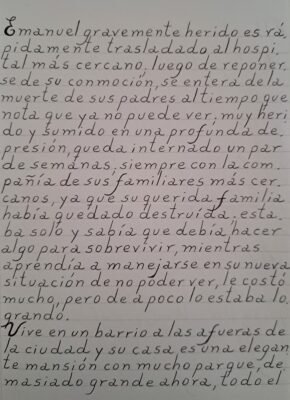 Emanuel gravemente herido es rá
pidamente trasladado al hospi
tal más cercano. luego de reponer
se de su conmoción, se entera de la
muerte de sus padres al tiempo que
nota que ya no puede ver, muy heri
do y sumido en una profunda de
presión, queda internado un par
de semanas, siempre con la com
pañía de sus familiares más cer
canos, ya que su querida familia
había quedado destruída, esta
ba solo y sabía que debía hacer
algo para sobrevivir, mientras
aprendía a manejarse en su nueva
situación de no poder ver, le costó
mucho, pero de a poco lo estaba lo
grando.
Vive en un barrio a las afueras de
la ciudad y su casa es una elegan
te mansión con mucho parque, de
masiado grande ahora, todo el